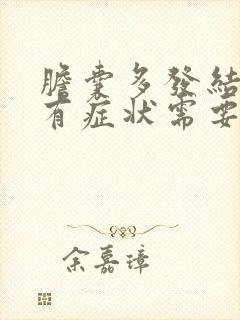 膽囊多發結
有症狀需要
余嘉璋